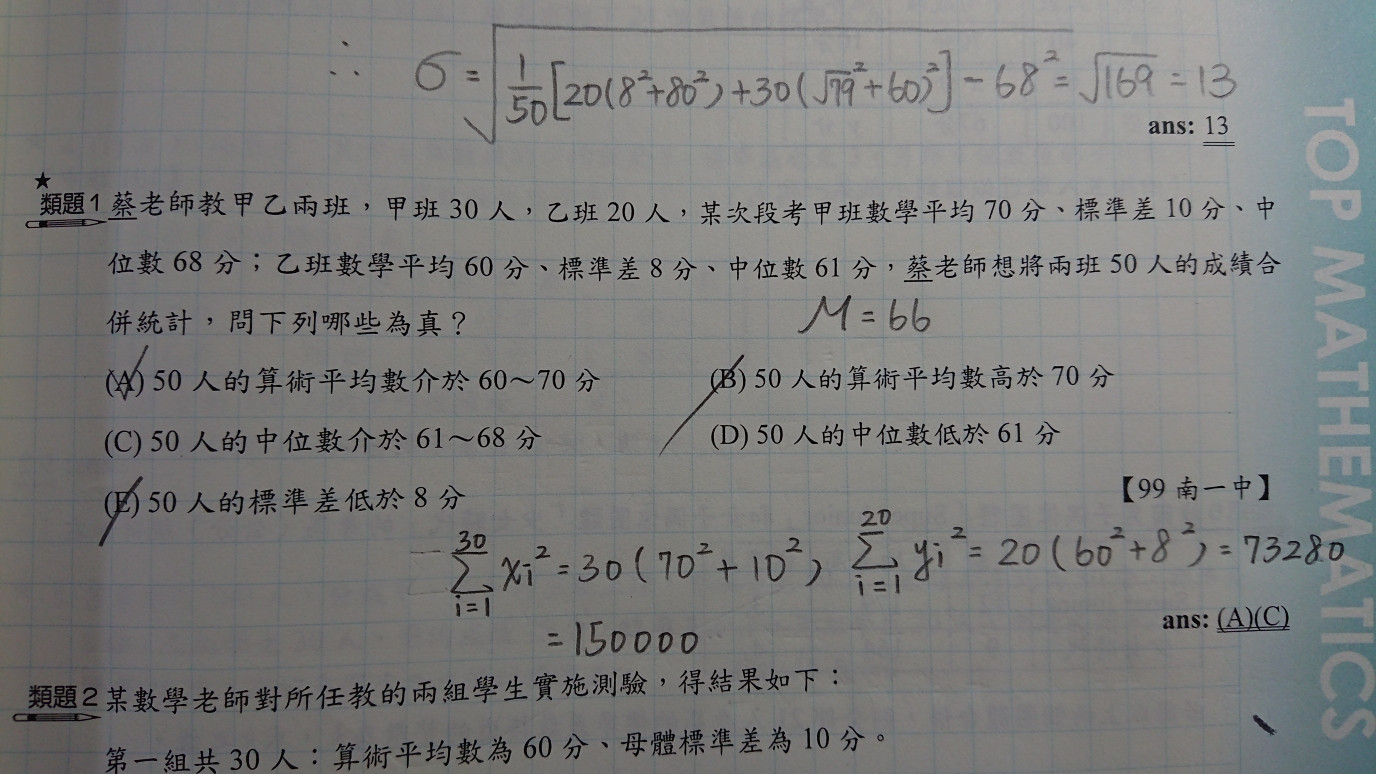 ∴ σ = √(1/50[20(8²+80²)+30(√79²+60)²] − 68²) = √169 = 13
ans: 13
★
類題1 蔡老師教甲乙兩班，甲班 30 人，乙班 20 人，某次段考甲班數學平均 70 分、標準差 10 分、中
位數 68 分；乙班數學平均 60 分、標準差 8 分、中位數 61 分，蔡老師想將兩班 50 人的成績合
併統計，問下列哪些為真？
M = 66
(A) 50 人的算術平均數介於 60～70 分 (B) 50 人的算術平均數高於 70 分
(C) 50 人的中位數介於 61～68 分 (D) 50 人的中位數低於 61 分
(E) 50 人的標準差低於 8 分
【99 南一中】
30 Σ i=1 xi² = 30(70²+10²) 20 Σ i=1 yi² = 20(60²+8²) = 73280
= 150000
ans: (A)(C)
類題2 某數學老師對所任教的兩組學生實施測驗，得結果如下：
第一組共 30 人：算術平均數為 60 分、母體標準差為 10 分。
TOP MATHEMATICS